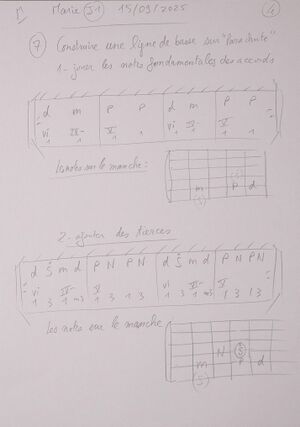 Marie J-1 15/09/2025 4
7 Construire une ligne de basse sur "Parachute"
1- jouer les notes fondamentales des accords
d m P P d m P P
vi IV- V 1 vi IV- V 1
Les notes sur le manche :
m P d
(S)
2- ajouter des tierces
d Ṡ m d P N P N d Ṡ m d P N P N
vi IV- V vi IV- V
1 3 1 m3 1 3 1 3 1 3 1 m3 1 3 1 3
Les notes sur le manche
N S
m P d
(S)